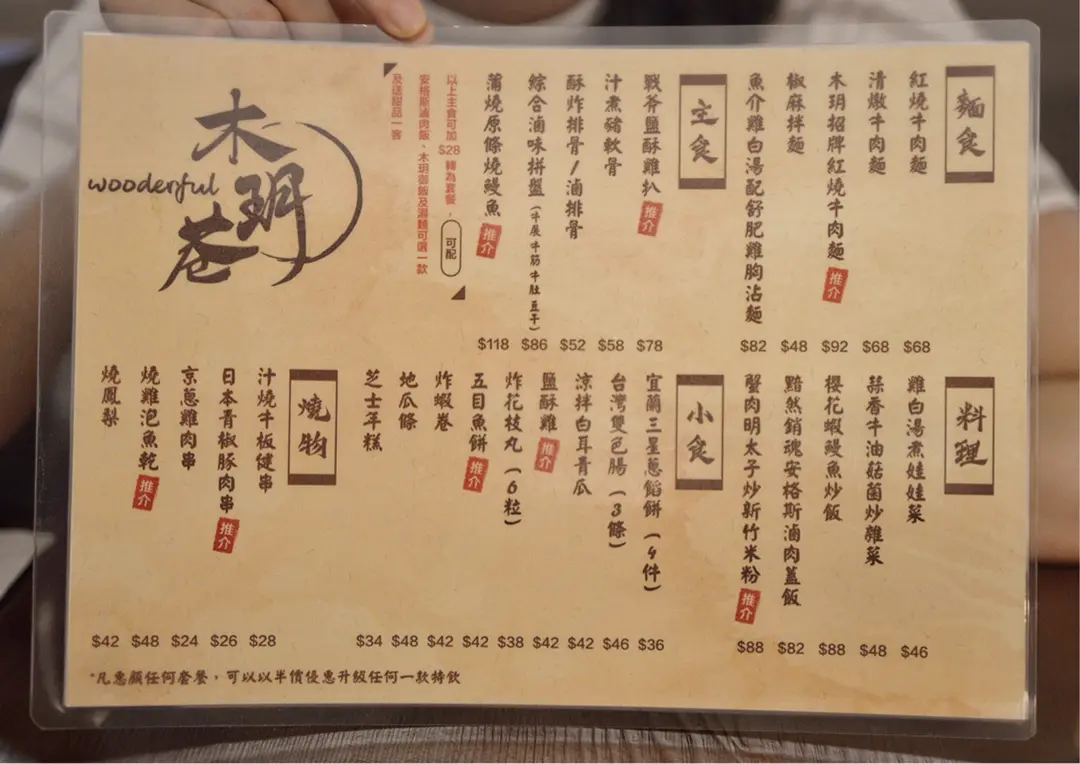 麵食
紅燒牛肉麵 $68
清燉牛肉麵 $68
木玥招牌紅燒牛肉麵 推介 $92
椒麻拌麵 $48
魚介雞白湯配舒肥雞胸沾麵 $82
主食
戰斧鹽酥雞扒 推介 $78
汁煮豬軟骨 $58
酥炸排骨/滷排骨 $52
綜合滷味拼盤(牛展牛筋牛肚豆干) $86
蒲燒原條燒鰻魚 推介 $118
以上主食可加$28轉為套餐， 可配
安格斯滷肉飯、木玥御飯及湯麵可選一款
及送甜品一客
木玥巷
wooderful
料理
雞白湯煮娃娃菜 $46
蒜香牛油菇菌炒雜菜 $48
櫻花蝦鰻魚炒飯 $88
黯然銷魂安格斯滷肉蓋飯 $82
蟹肉明太子炒新竹米粉 推介 $88
小食
宜蘭三星蔥餡餅(4件) $36
台灣雙色腸(3條) $46
涼拌白耳青瓜 $42
鹽酥雞 推介 $42
炸花枝丸(6粒) $38
五目魚餅 推介 $42
炸蝦卷 $42
地瓜條 $48
芝士年糕 $34
燒物
汁燒牛板健串 $28
日本青椒豚肉串 推介 $26
京蔥雞肉串 $24
燒雞泡魚乾 推介 $48
燒鳳梨 $42
*凡惠顧任何套餐，可以以半價優惠升級任何一款特飲